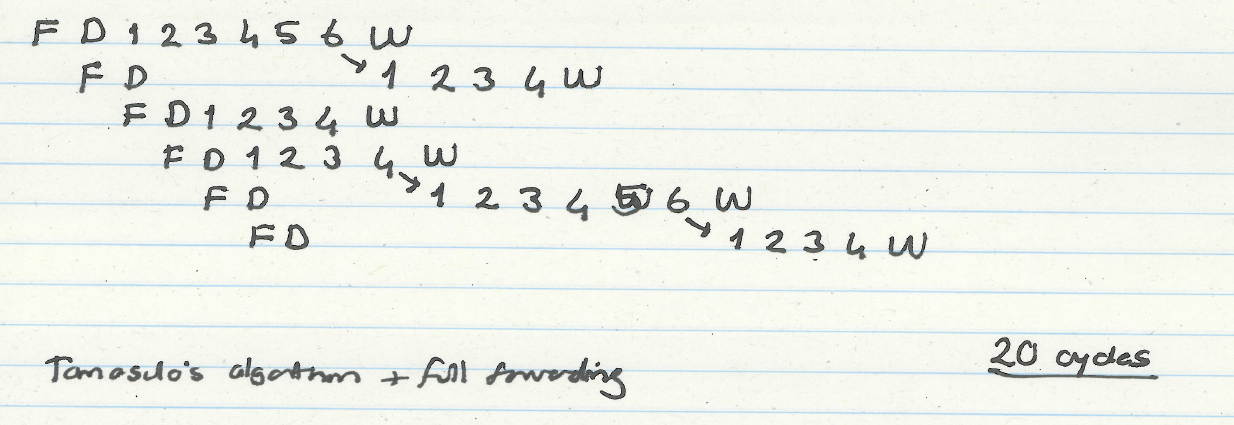 F D 1 2 3 4 5 6 W
F D → 1 2 3 4 W
F D 1 2 3 4 W
F D 1 2 3 4 W
F D → 1 2 3 4 5 6 W
F D → 1 2 3 4 W
Tomasulo's algorithm + full forwarding
20 cycles